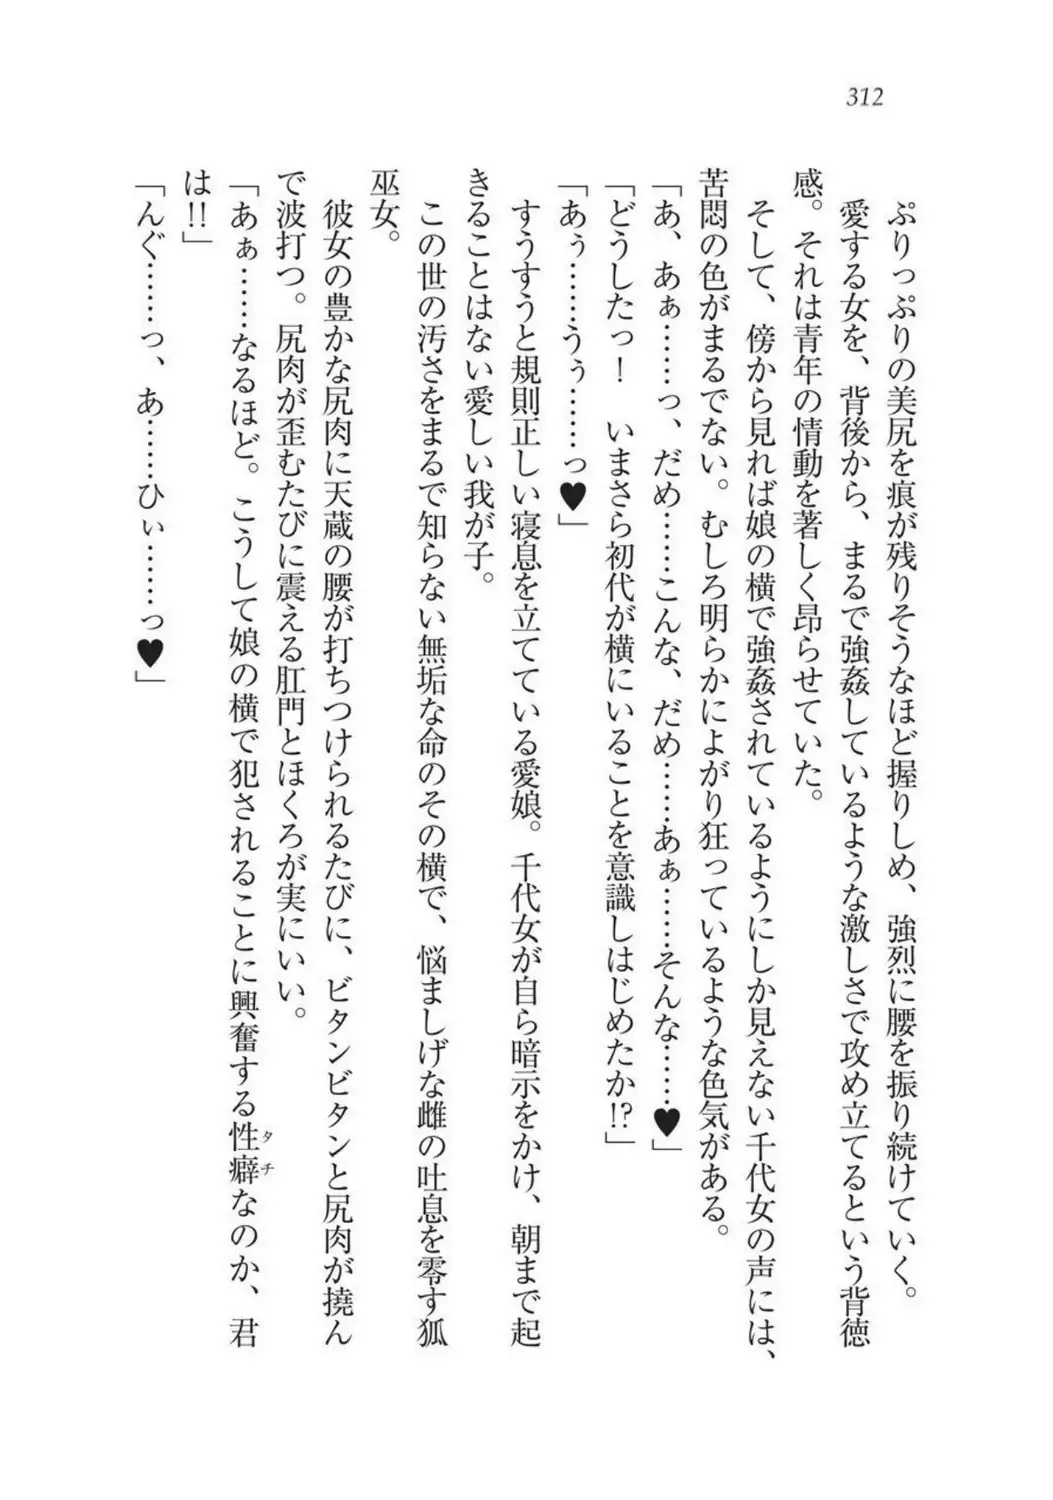 312
ぷりっぷりの美尻を痕が残りそうなほど握りしめ、強烈に腰を振り続けていく。
愛する女を、背後から、まるで強姦しているような激しさで攻め立てるという背徳
感。それは青年の情動を著しく昂らせていた。
そして、傍から見れば娘の横で強姦されているようにしか見えない千代女の声には、
苦悶の色がまるでない。むしろ明らかによがり狂っているような色気がある。
「あ、あぁ……っ、だめ……こんな、だめ……あぁ……そんな……♥」
「どうしたっ！　いまさら初代が横にいることを意識しはじめたか!?」
「あぅ……うぅ……っ♥」
すうすうと規則正しい寝息を立てている愛娘。千代女が自ら暗示をかけ、朝まで起
きることはない愛しい我が子。
この世の汚さをまるで知らない無垢な命のその横で、悩ましげな雌の吐息を零す狐
巫女。
彼女の豊かな尻肉に天蔵の腰が打ちつけられるたびに、ビタンビタンと尻肉が撓ん
で波打つ。尻肉が歪むたびに震える肛門とほくろが実にいい。
「あぁ……なるほど。こうして娘の横で犯されることに興奮する性癖タチなのか、君
は!!」
「んぐ……っ、あ……ひぃ……っ♥」